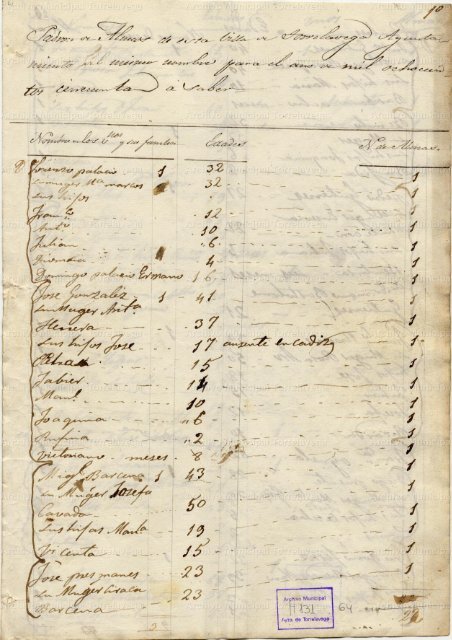 10
Padron de Almas de esta Villa de Torrelavega Ayunta-
miento del mismo nombre para el año de mil ochocien-
tos cincuenta a saber
Nombre de los Vnos y sus familias Edades Nº de Almas
Lorenzo palacio 1 32 1
su muger Mª marcos 32 1
sus hijos
Franco 12 1
Antº 10 1
Julian 6 1
4 1
Domingo palacio Ermano 16 1
Jose Gonzalez 1 41 1
su Muger Anta
Herrera 37 1
sus hijos Jose 17 ausente en cadiz 1
15 1
Jabier 14 1
Manl 10 1
Joaquina 6 1
Rufina 2 1
Victoriano meses 8 1
Migl Barcena 1 43 1
su Muger Josefa
Cavada 50 1
sus hijos Manla 19 1
Vicenta 15 1
Jose presmanes 23 1
su Muger Graca
Barcena 23 1
Archivo Municipal
H 131
Ayto. de Torrelavega
64